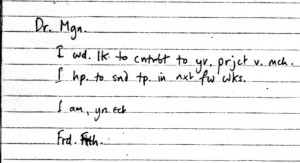 Dr. Mgn.
I wd. lk. to cntrbt to yr. prjct v. mch.
I hp. to snd tp. in nxt fw wks.
I am, yrs etc
Frd. Frth.